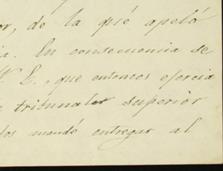 or, de la qué apeló
ia. En consecuencia de
V. E., que entonces ejercia
e tribunales superior
los mandó entregar al